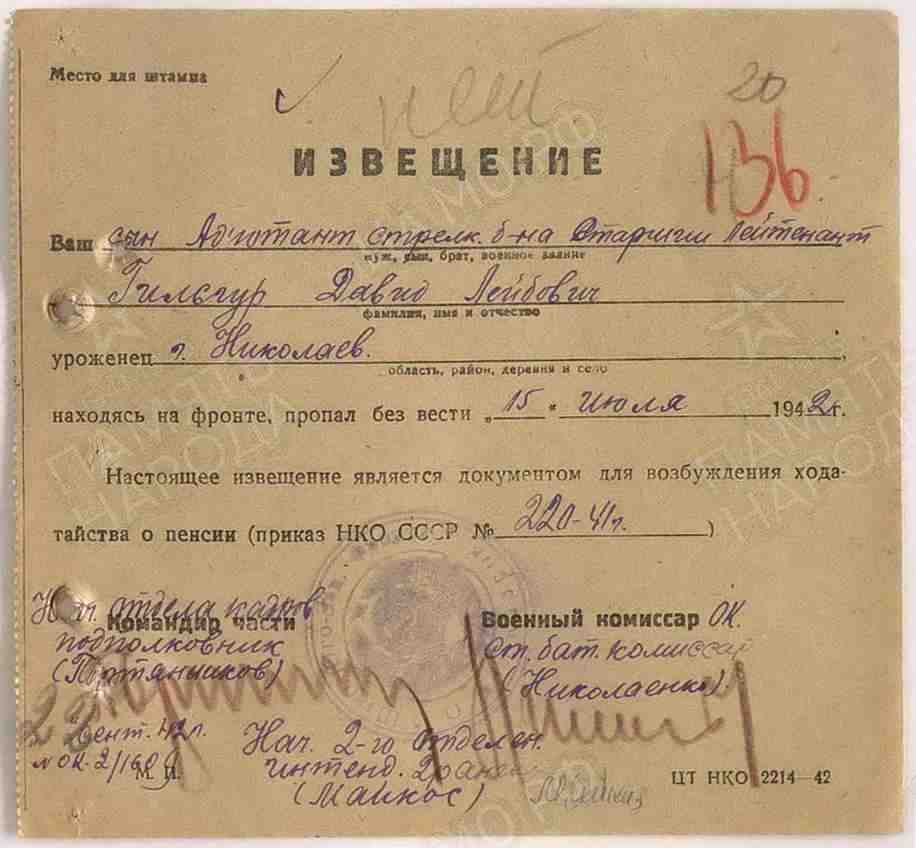 Место для штампа
нет
20
136
ИЗВЕЩЕНИЕ
Ваш сын Ад'ютант стрелк. б-на Старший Лейтенант
муж, сын, брат, военное звание
Гильгур Давид Лейбович
фамилия, имя и отчество
уроженец г. Николаев.
область, район, деревня и село
находясь на фронте, пропал без вести „15“ июля 1942г.
Настоящее извещение является документом для возбуждения хода-
тайства о пенсии (приказ НКО СССР № 220-41г.)
Нач. отдела кадров
Командир части
Военный комиссар ОК.
подполковник
ст. бат. комиссар
(Николаенко).
22 сент. 42г.
Нач. 2-го отделен.
№ ОК-2/1609
М. П.
интенд. 2 ранга
ЦТ НКО 2214—42
(Майкос)
ПАМЯТЬ НАРОДА